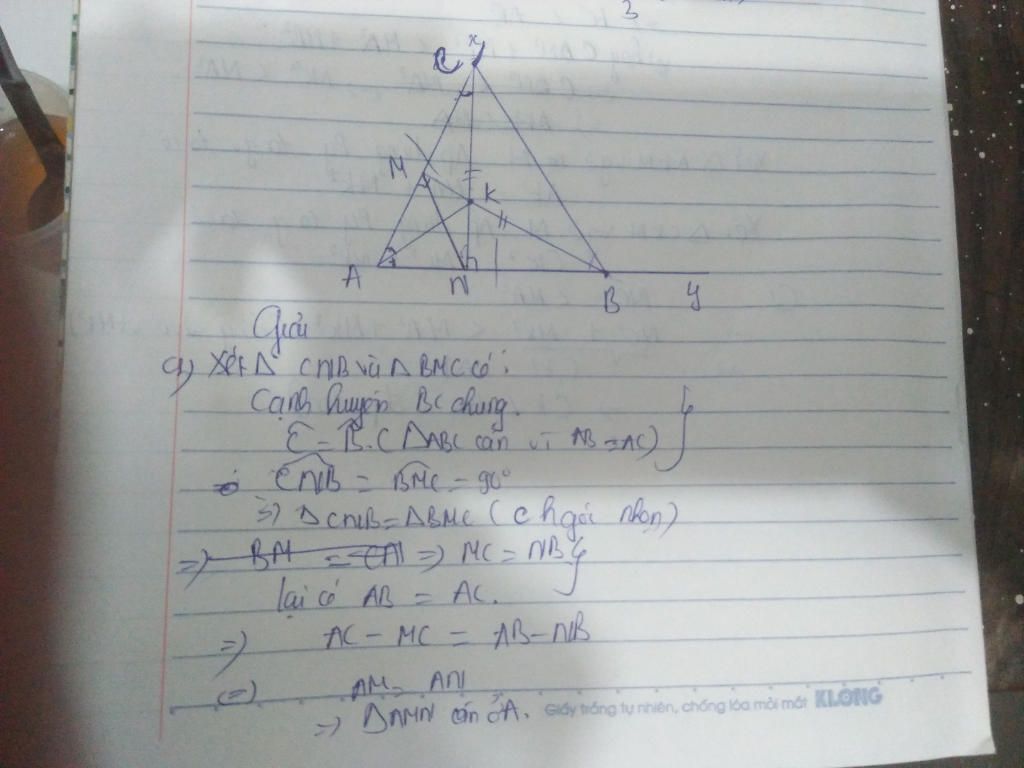 3
x
C
M
K
A
N
B
y
Giải
a) Xét Δ CNB và Δ BMC có:
Cạnh huyền BC chung.
Ĉ = B̂ (ΔABC cân vì AB = AC)
CNB = BMC = 90°
=> ΔCNB = ΔBMC (ch góc nhọn)
=> BM = CN => MC = NB
lại có AB = AC.
=> AC - MC = AB - NB
(=) AM = AN
=> ΔAMN cân ở A.
Giấy trắng tự nhiên, chống lóa mỏi mắt KLONG